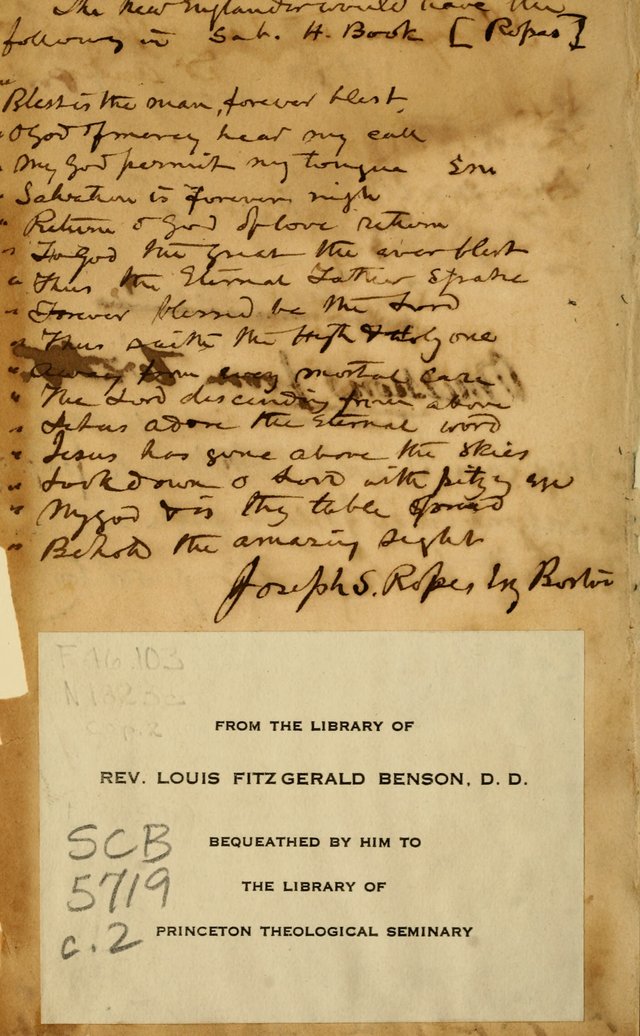 The New Englander would have the
following in Sab. H. Book [Ropes]
" Blest is the man, forever blest,
" O God of mercy hear my call
" My God permit my tongue
" Salvation is forever nigh
" Return O God of love return
" To God the great the ever blest
" Thus the Eternal Father spake
" Forever blessed be the Lord
" Thus saith the High & Holy one
" Away from every mortal care
" The Lord descending from above
" Let us adore the Eternal word
" Jesus has gone above the skies
" Look down O Lord with pitying eye
" My God & is thy table spread
" Behold the amazing sight
Joseph S. Ropes Esq Boston
F46.103
cop. 2
FROM THE LIBRARY OF
REV. LOUIS FITZGERALD BENSON, D. D.
BEQUEATHED BY HIM TO
THE LIBRARY OF
PRINCETON THEOLOGICAL SEMINARY
SCB
5719
c. 2